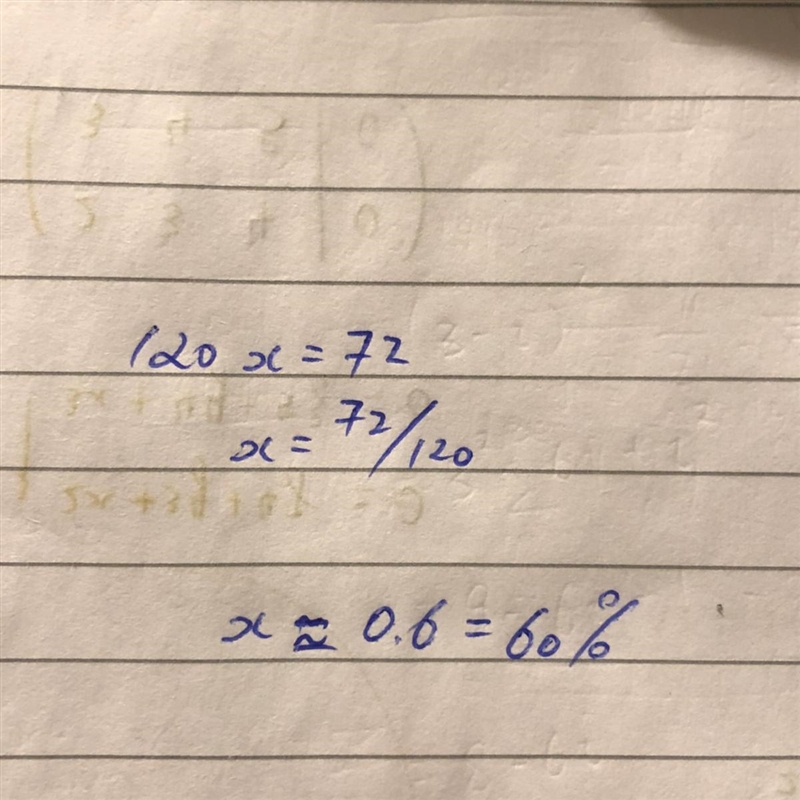 120 x = 72
x = 72/120
x ≈ 0.6 = 60%